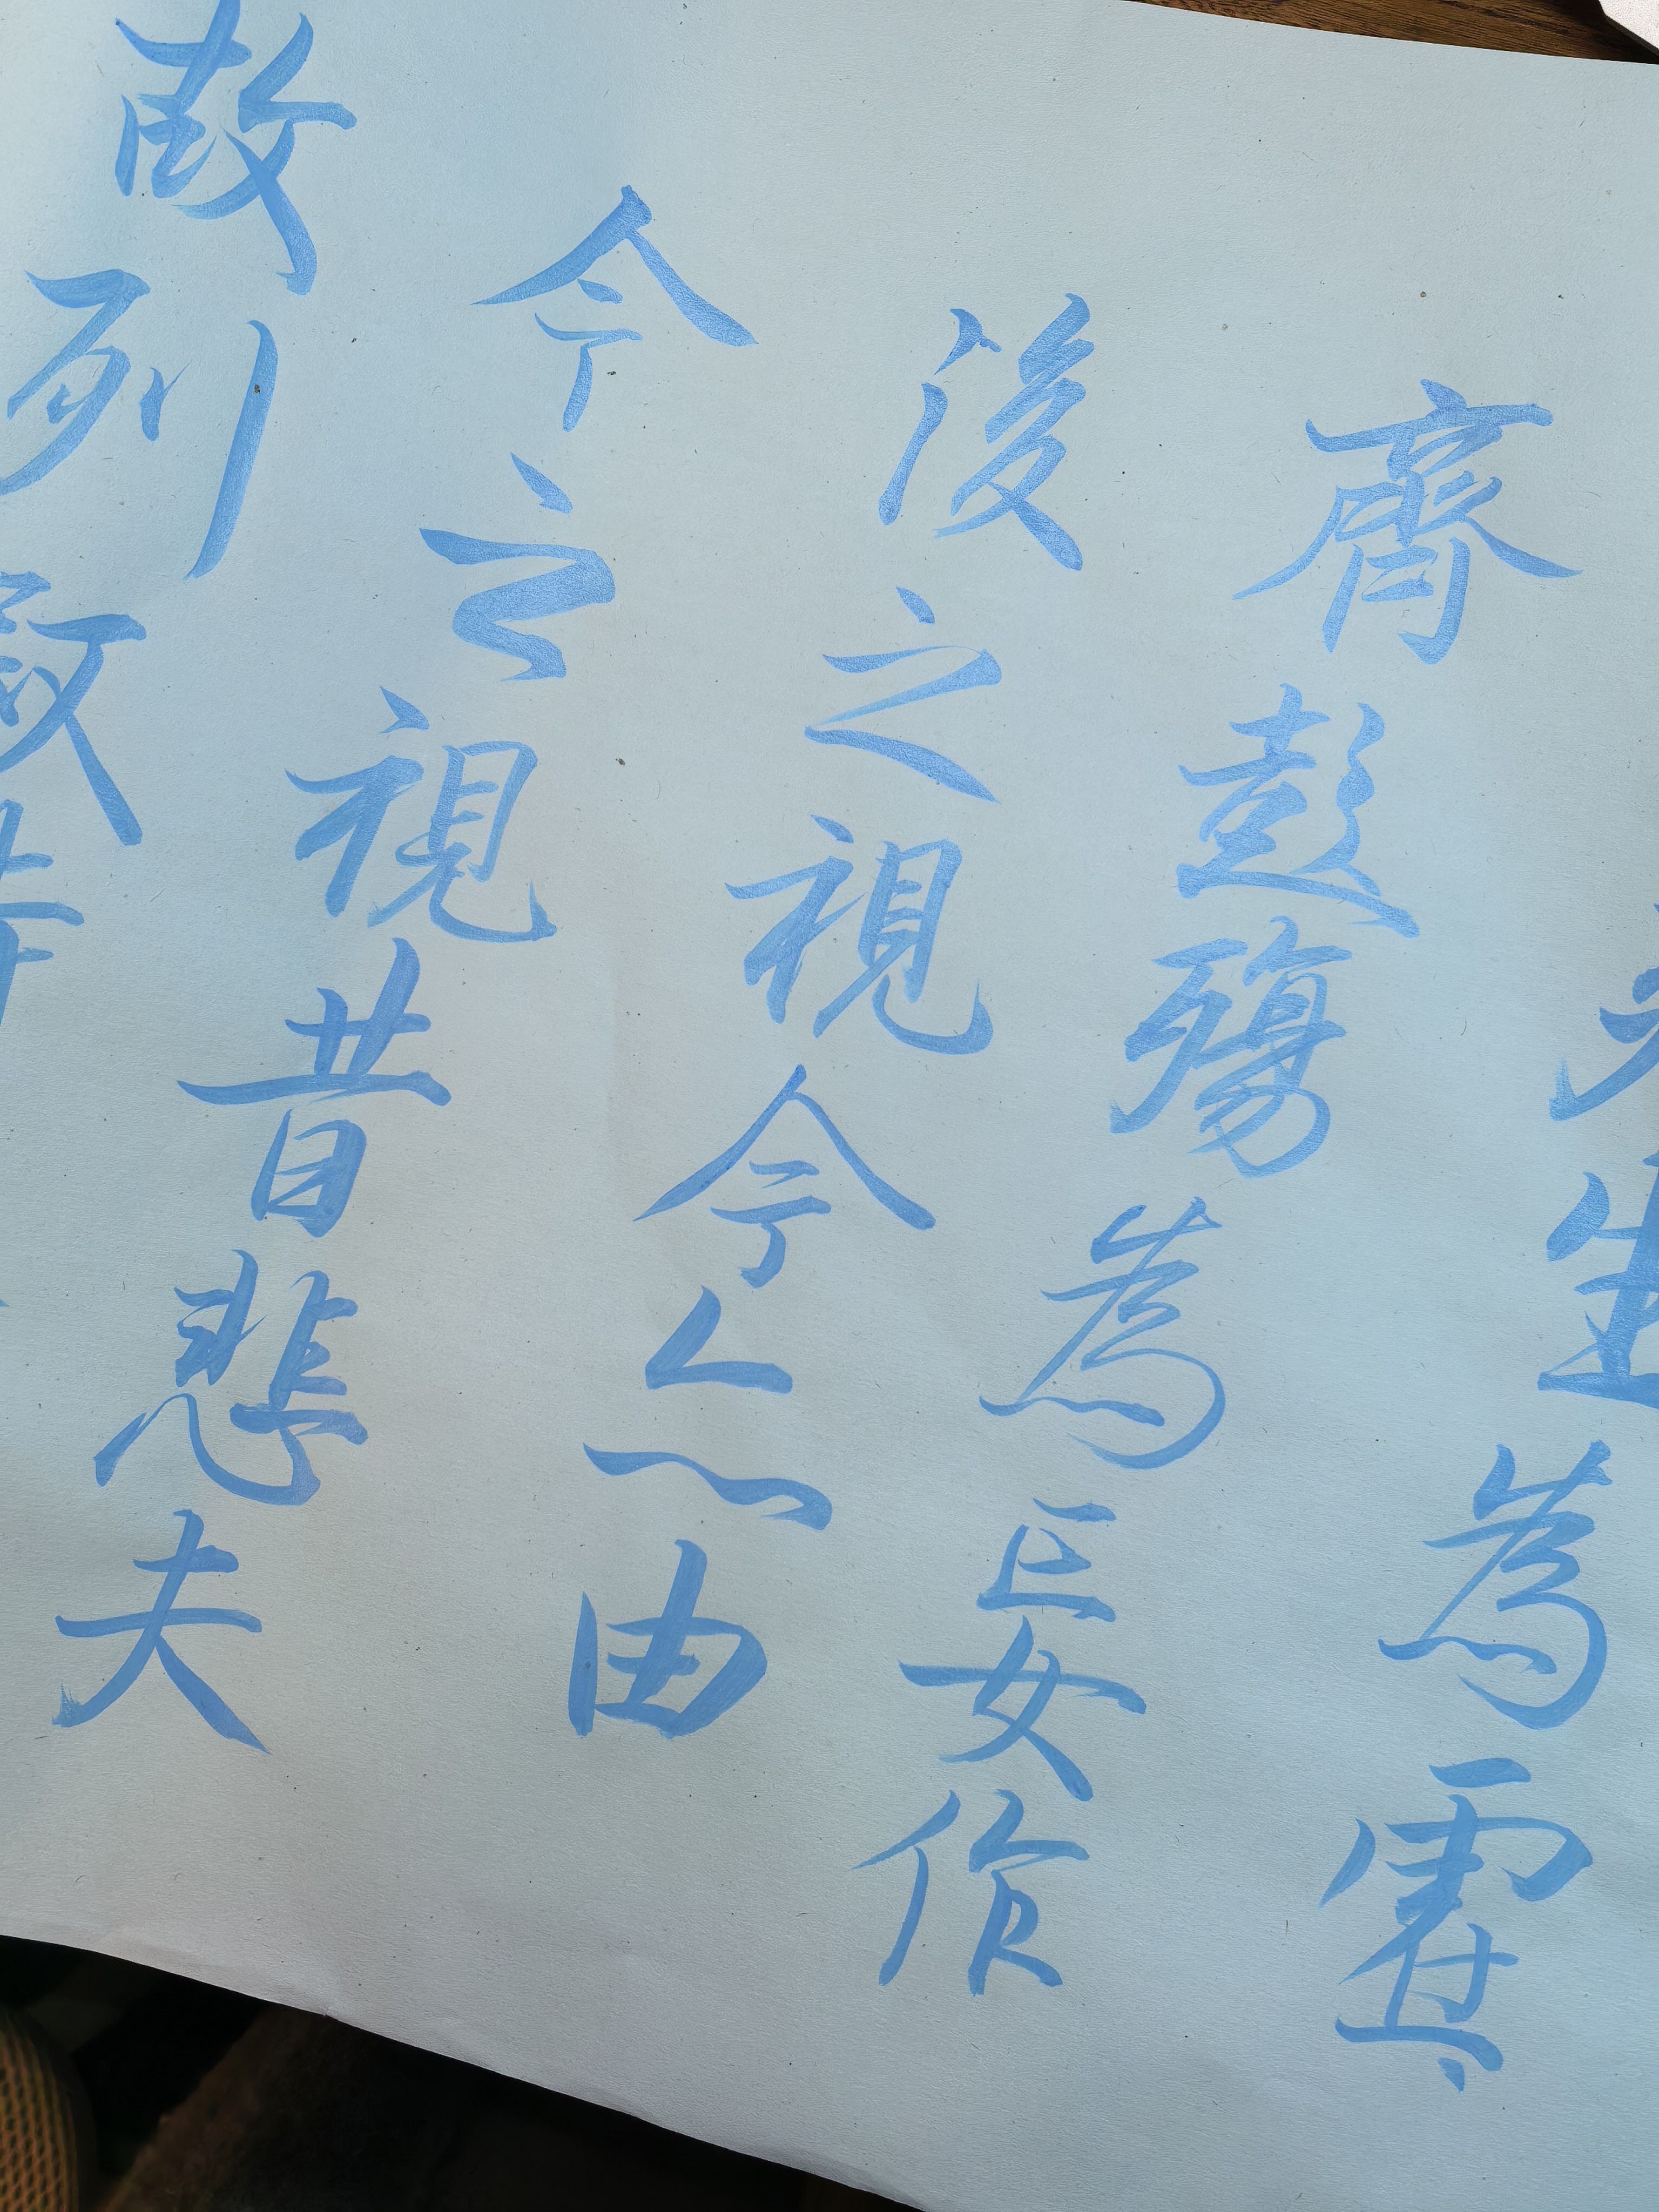 生為虛
齊彭殤為妄作
後之視今亦由
今之視昔悲夫
故列叙